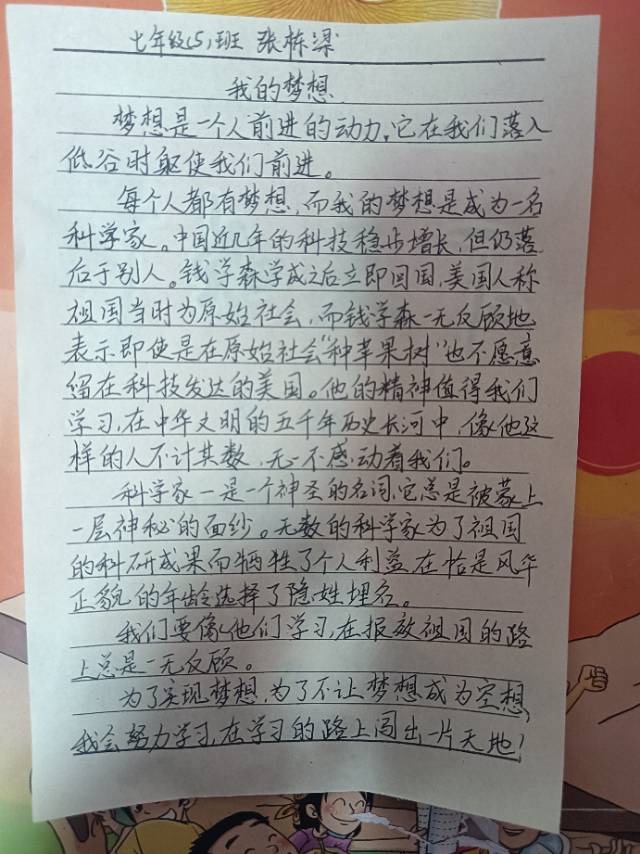 七年级(5)班 张栋梁
我的梦想
梦想是一个人前进的动力,它在我们落入
低谷时驱使我们前进。
每个人都有梦想,而我的梦想是成为一名
科学家。中国近几年的科技稳步增长,但仍落
后于别人。钱学森学成之后立即回国,美国人称
祖国当时为原始社会,而钱学森一无反顾地
表示即使是在原始社会“种苹果树”也不愿意
留在科技发达的美国。他的精神值得我们
学习,在中华文明的五千年历史长河中,像他这
样的人不计其数,无一不感动着我们。
科学家一是一个神圣的名词,它总是被蒙上
一层神秘的面纱。无数的科学家为了祖国
的科研成果而牺牲了个人利益,在恰是风华
正貌的年龄选择了隐姓埋名。
我们要像他们学习,在报效祖国的路
上总是一无反顾。
为了实现梦想,为了不让梦想成为空想,
我会努力学习,在学习的路上闯出一片天地!